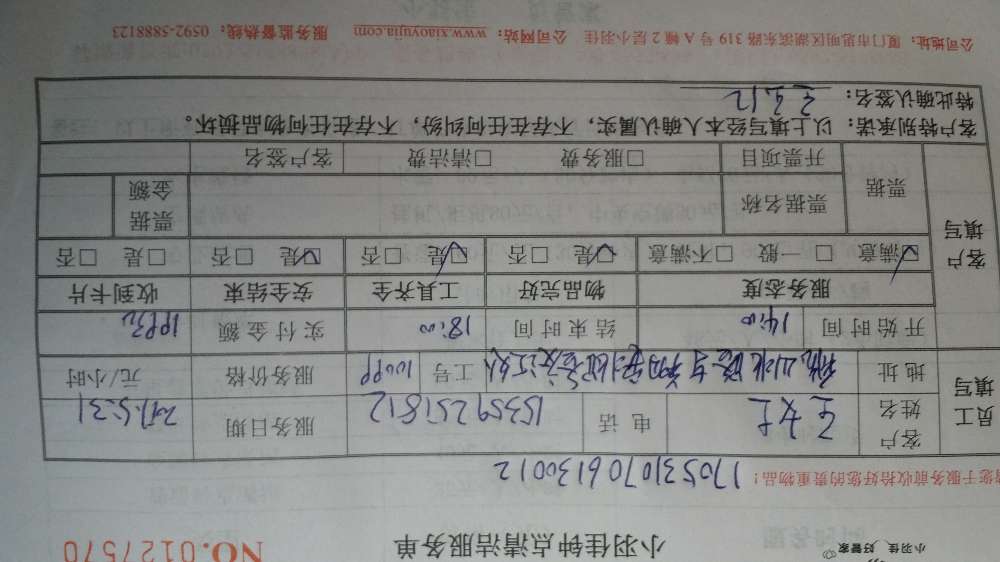 小羽佳 好管家
小羽佳钟点清洁服务单
NO.0127570
您于服务前收拾好您的贵重物品！
1705310706130012
员工填写
客户姓名 王女士 电话 15359251812 服务日期 2017.5.31
地址 工号 服务价格 元/小时
开始时间 14:00 结束时间 18:00 实付金额
客户填写
服务态度 物品完好 工具齐全 安全结束 收到卡片
☑满意 □一般 □不满意 ☑是 □否 ☑是 □否 ☑是 □否 □是 □否
票据 票据名称 票据金额
开票项目 □服务费 □清洁费 客户签名
客户特别承诺：以上填写经本人确认属实，不存在任何纠纷，不存在任何物品损坏。
特此确认签名：
公司地址：厦门市思明区湖滨东路319号A幢2层小羽佳 公司网站：www.xiaoyujia.com 服务监督热线：0592-5888123